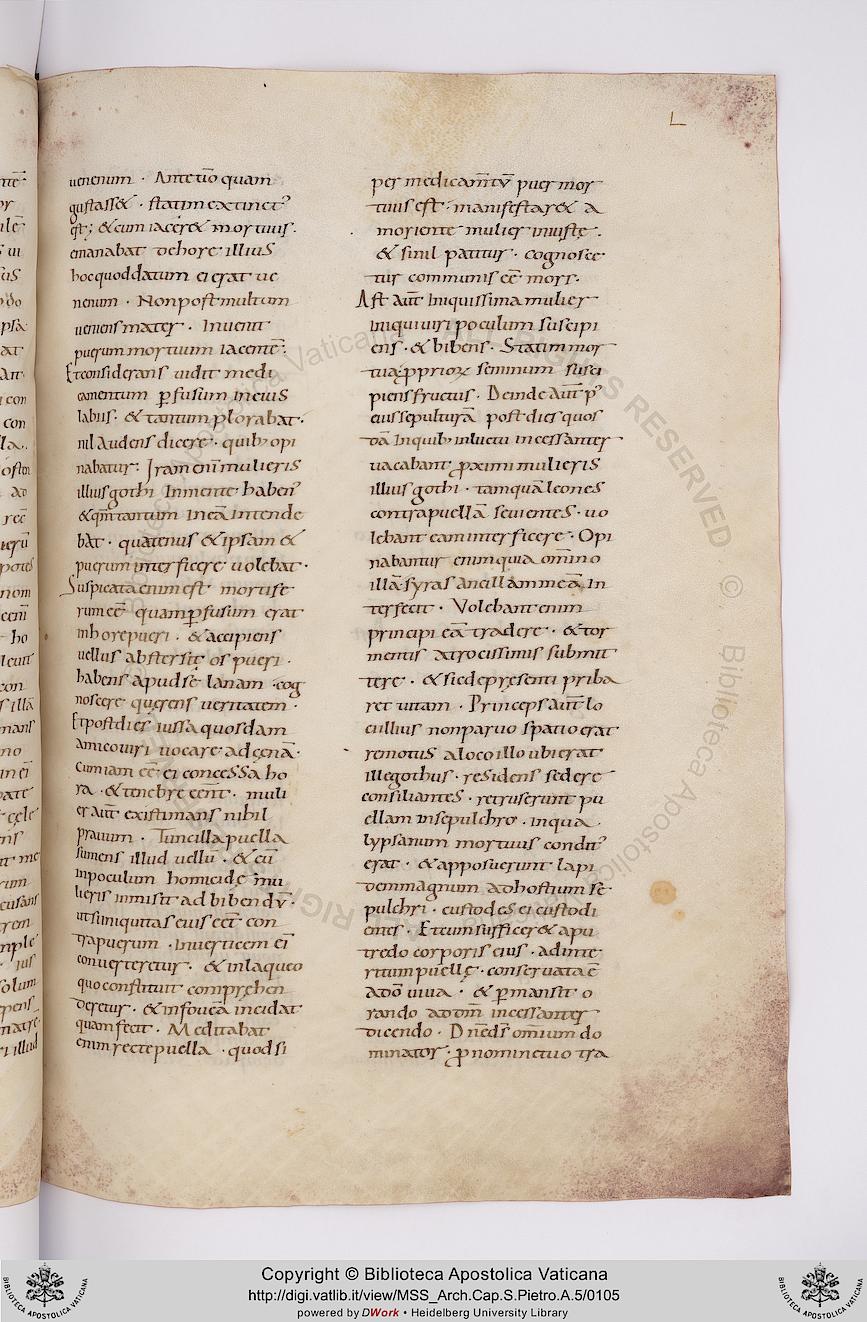 L
uenenum · Ante uō quam
gustass& · statim extinct᾽
est; & cum iacer& mortuus.
emanabat dehore illius
hocquoddatum ei erat ue
nenum · Nonpost multum
ueniens mater · Inuenit
puerum mortuum iacentē.
Et considerans uidit medi
camentum pfusum ineius
labiis · & tantum plorabat·
nil Audens dicere · quib; opi
nabatur: Iram enī mulieris
illius gothi Inmente haben᾽
&qm̄ tantum Ineā Intende
bat · quatenus & ipsam &
puerum interficere uolebat·
Suspicata enim est mortife
rum eē quam pfusum erat
inhore pueri · & accipiens
uellus abstersit os pueri ·
habens apud se lanam · cog
noscere querens ueritatem ·
Et post dies iussa quosdam
Amico uiri uocare ad cenā·
cum iam eē ei concessa ho
ra · & tenebre eent · muli
er aūt existimans nihil
prauum · Tunc illa puella
sumens illud uellū · & cū
inpoculum homicide mu
lieris inmisit ad bibendū·
ut sin iquitas eius eēt con
tra puerum · Inuerticem ei
conuerteretur · & inlaqueo
quo constituit comprehen
deretur · & infoueā incidat
quam fecit · Meditabat
enim recte puella · quod si
per medicam̄tū puer mor
tuus est · manifestar& a
moriente mulier iniuste.
& simil patitur · cognosce
tur communis eē mors·
Ast aūt Iniquissima mulier
iniqui uiri poculum suscipi
ens · & bibens · Statim mor
tua p prior seminum susci
piens fructus · Deinde aūt p᾽
eius sepulturā post dies quos
dā Inquib; inluctu incessanter
uacabant pximi mulieris
illius gothi · tamquā leones
contra puellā seuientes · uo
lebant eam interficere · Opi
nabantur enim quia omīno
illā syras ancillam meā In
terfecit · Volebant enim
principi eā tradere · & tor
mentis atrocissimis submit
tere · & sic depresenti priba
ret uitam · Princeps aūt lo
ci illius non paruo spatio erat
remotus a loco illo ubi erat
ille gothus · residens sedere
consiliantes · retruserunt pu
ellam insepulchro · inqua
lypsanum mortuus condit᾽
erat · & apposuerunt lapi
dem magnum ad hostium se
pulchri · custodes ei custodi
entes · Et cum suffice& apu
tredo corporis eius · ad inte
ritum puelle · conseruata ē
a dō uiua · & pmansit o
rando ad dm̄ incessanter
dicendo · Dn̄e ds̄ omīum do
minator · p nomine tuo tra
Copyright © Biblioteca Apostolica Vaticana
http://digi.vatlib.it/view/MSS_Arch.Cap.S.Pietro.A.5/0105
powered by DWork • Heidelberg University Library